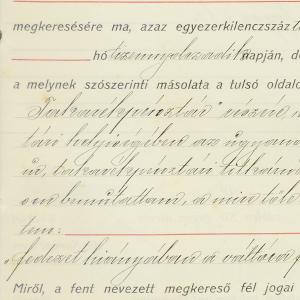 megkeresésére ma, azaz egyezerkilenczszáz
hó tizennyolczadik napján, d
a melynek szószerinti másolata a tulsó oldal
Takarékpénztár" részvé
tári helyiségében az ugyan
úr, takarékpénztári titkár
em bemutattam, a mire tőle
tem:
„fedezet hiányában a váltóra
Miről, a fent nevezett megkereső fél jogai